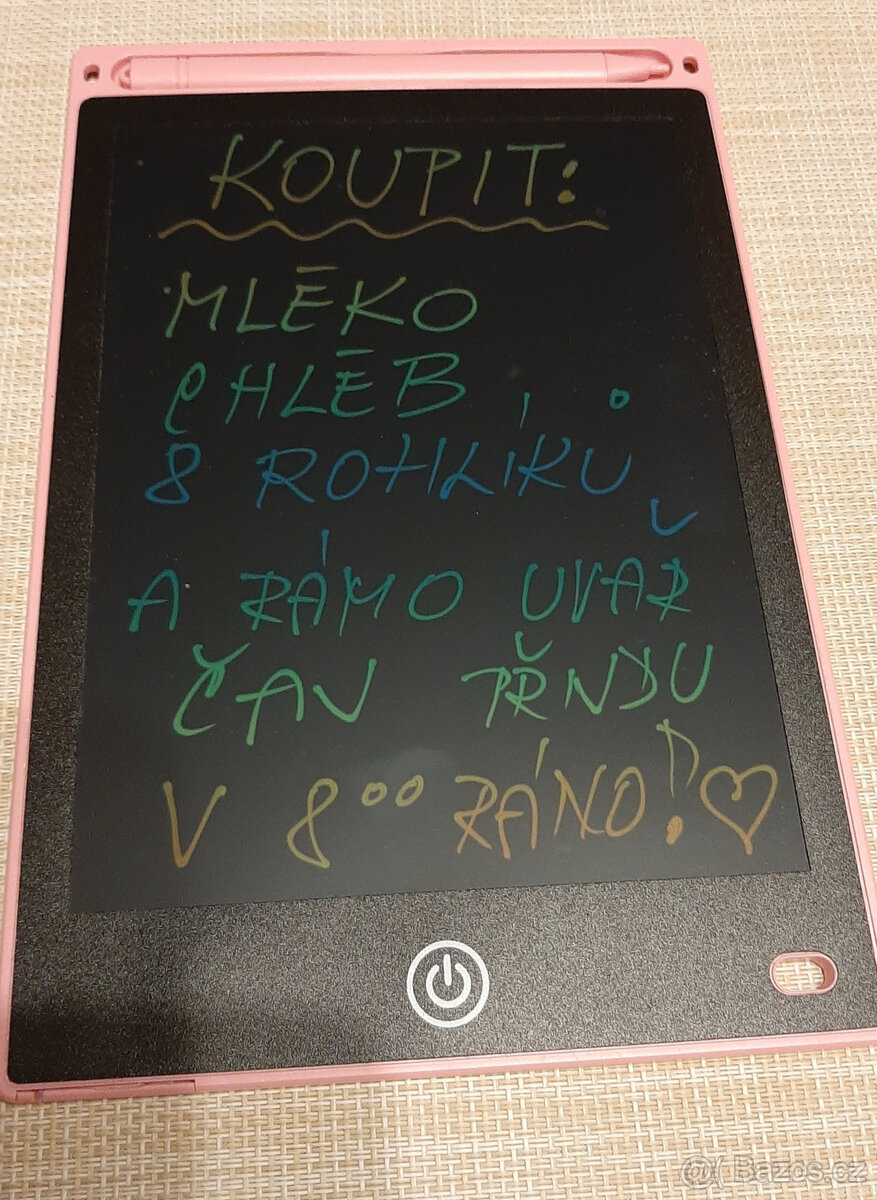 KOUPIT:
MLÉKO
CHLÉB
8 ROHLÍKŮ
A RÁNO UVAŘ
ČAJ PŘIJDU
V 8⁰⁰ RÁNO! ♡
@( Bazos.cz